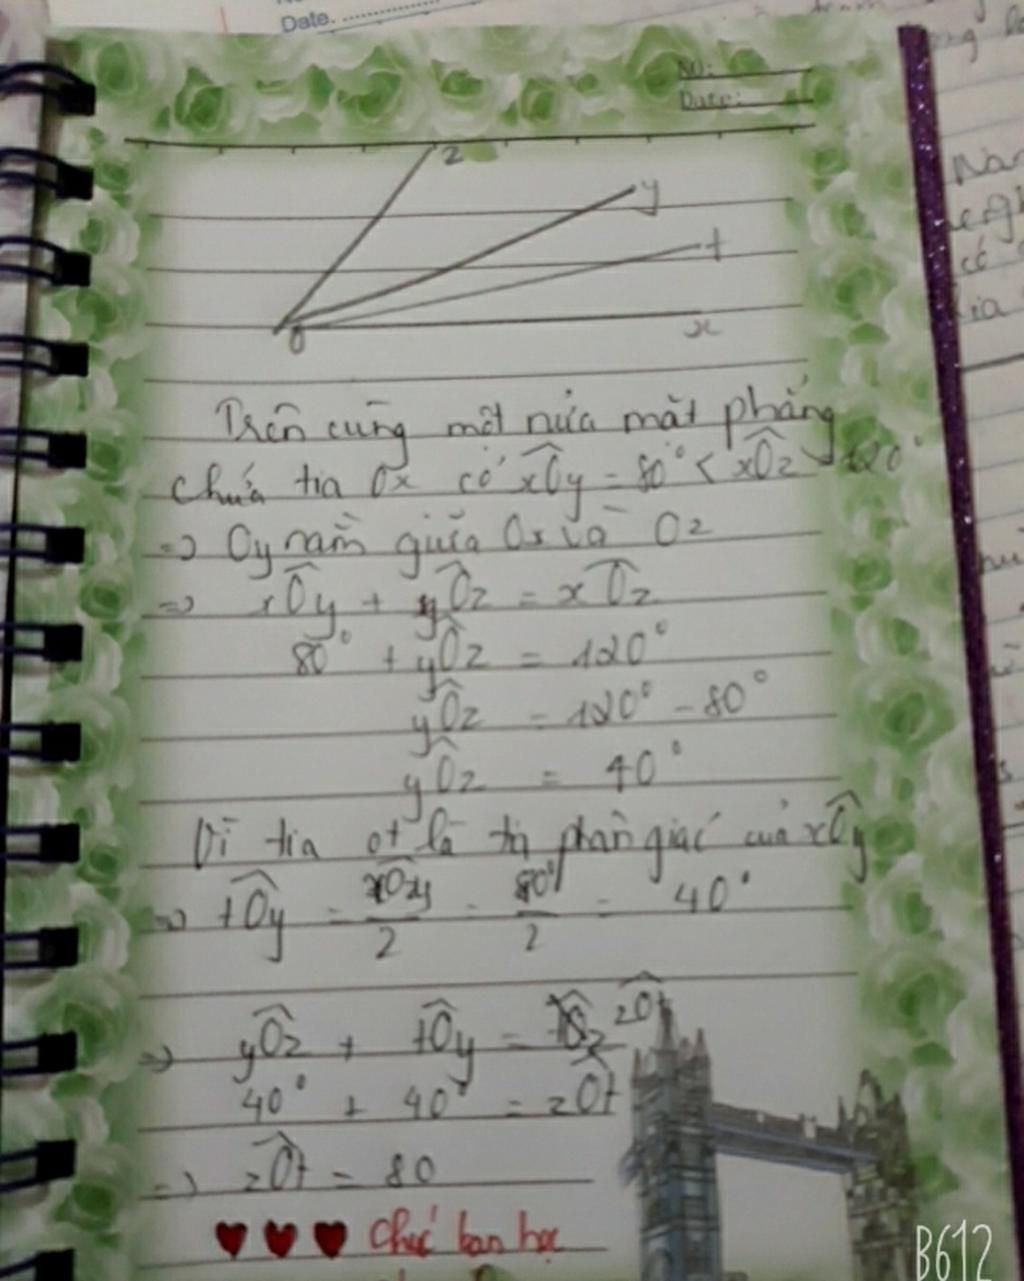 Date.
NO:
Date:
z
y
t
O
x
Trên cùng một nửa mặt phẳng
chứa tia Ox có xÔy = 80° < xÔz = 120°
=> Oy nằm giữa Ox và Oz
=> xÔy + yÔz = xÔz
80° + yÔz = 120°
yÔz = 120° - 80°
yÔz = 40°
Vì tia ot là tia phân giác của xÔy
=> tÔy = xÔy/2 = 80°/2 = 40°
=> yÔz + tÔy = zÔt
40° + 40° = zÔt
=> zÔt = 80
♥ ♥ ♥ Chúc bạn học
B612